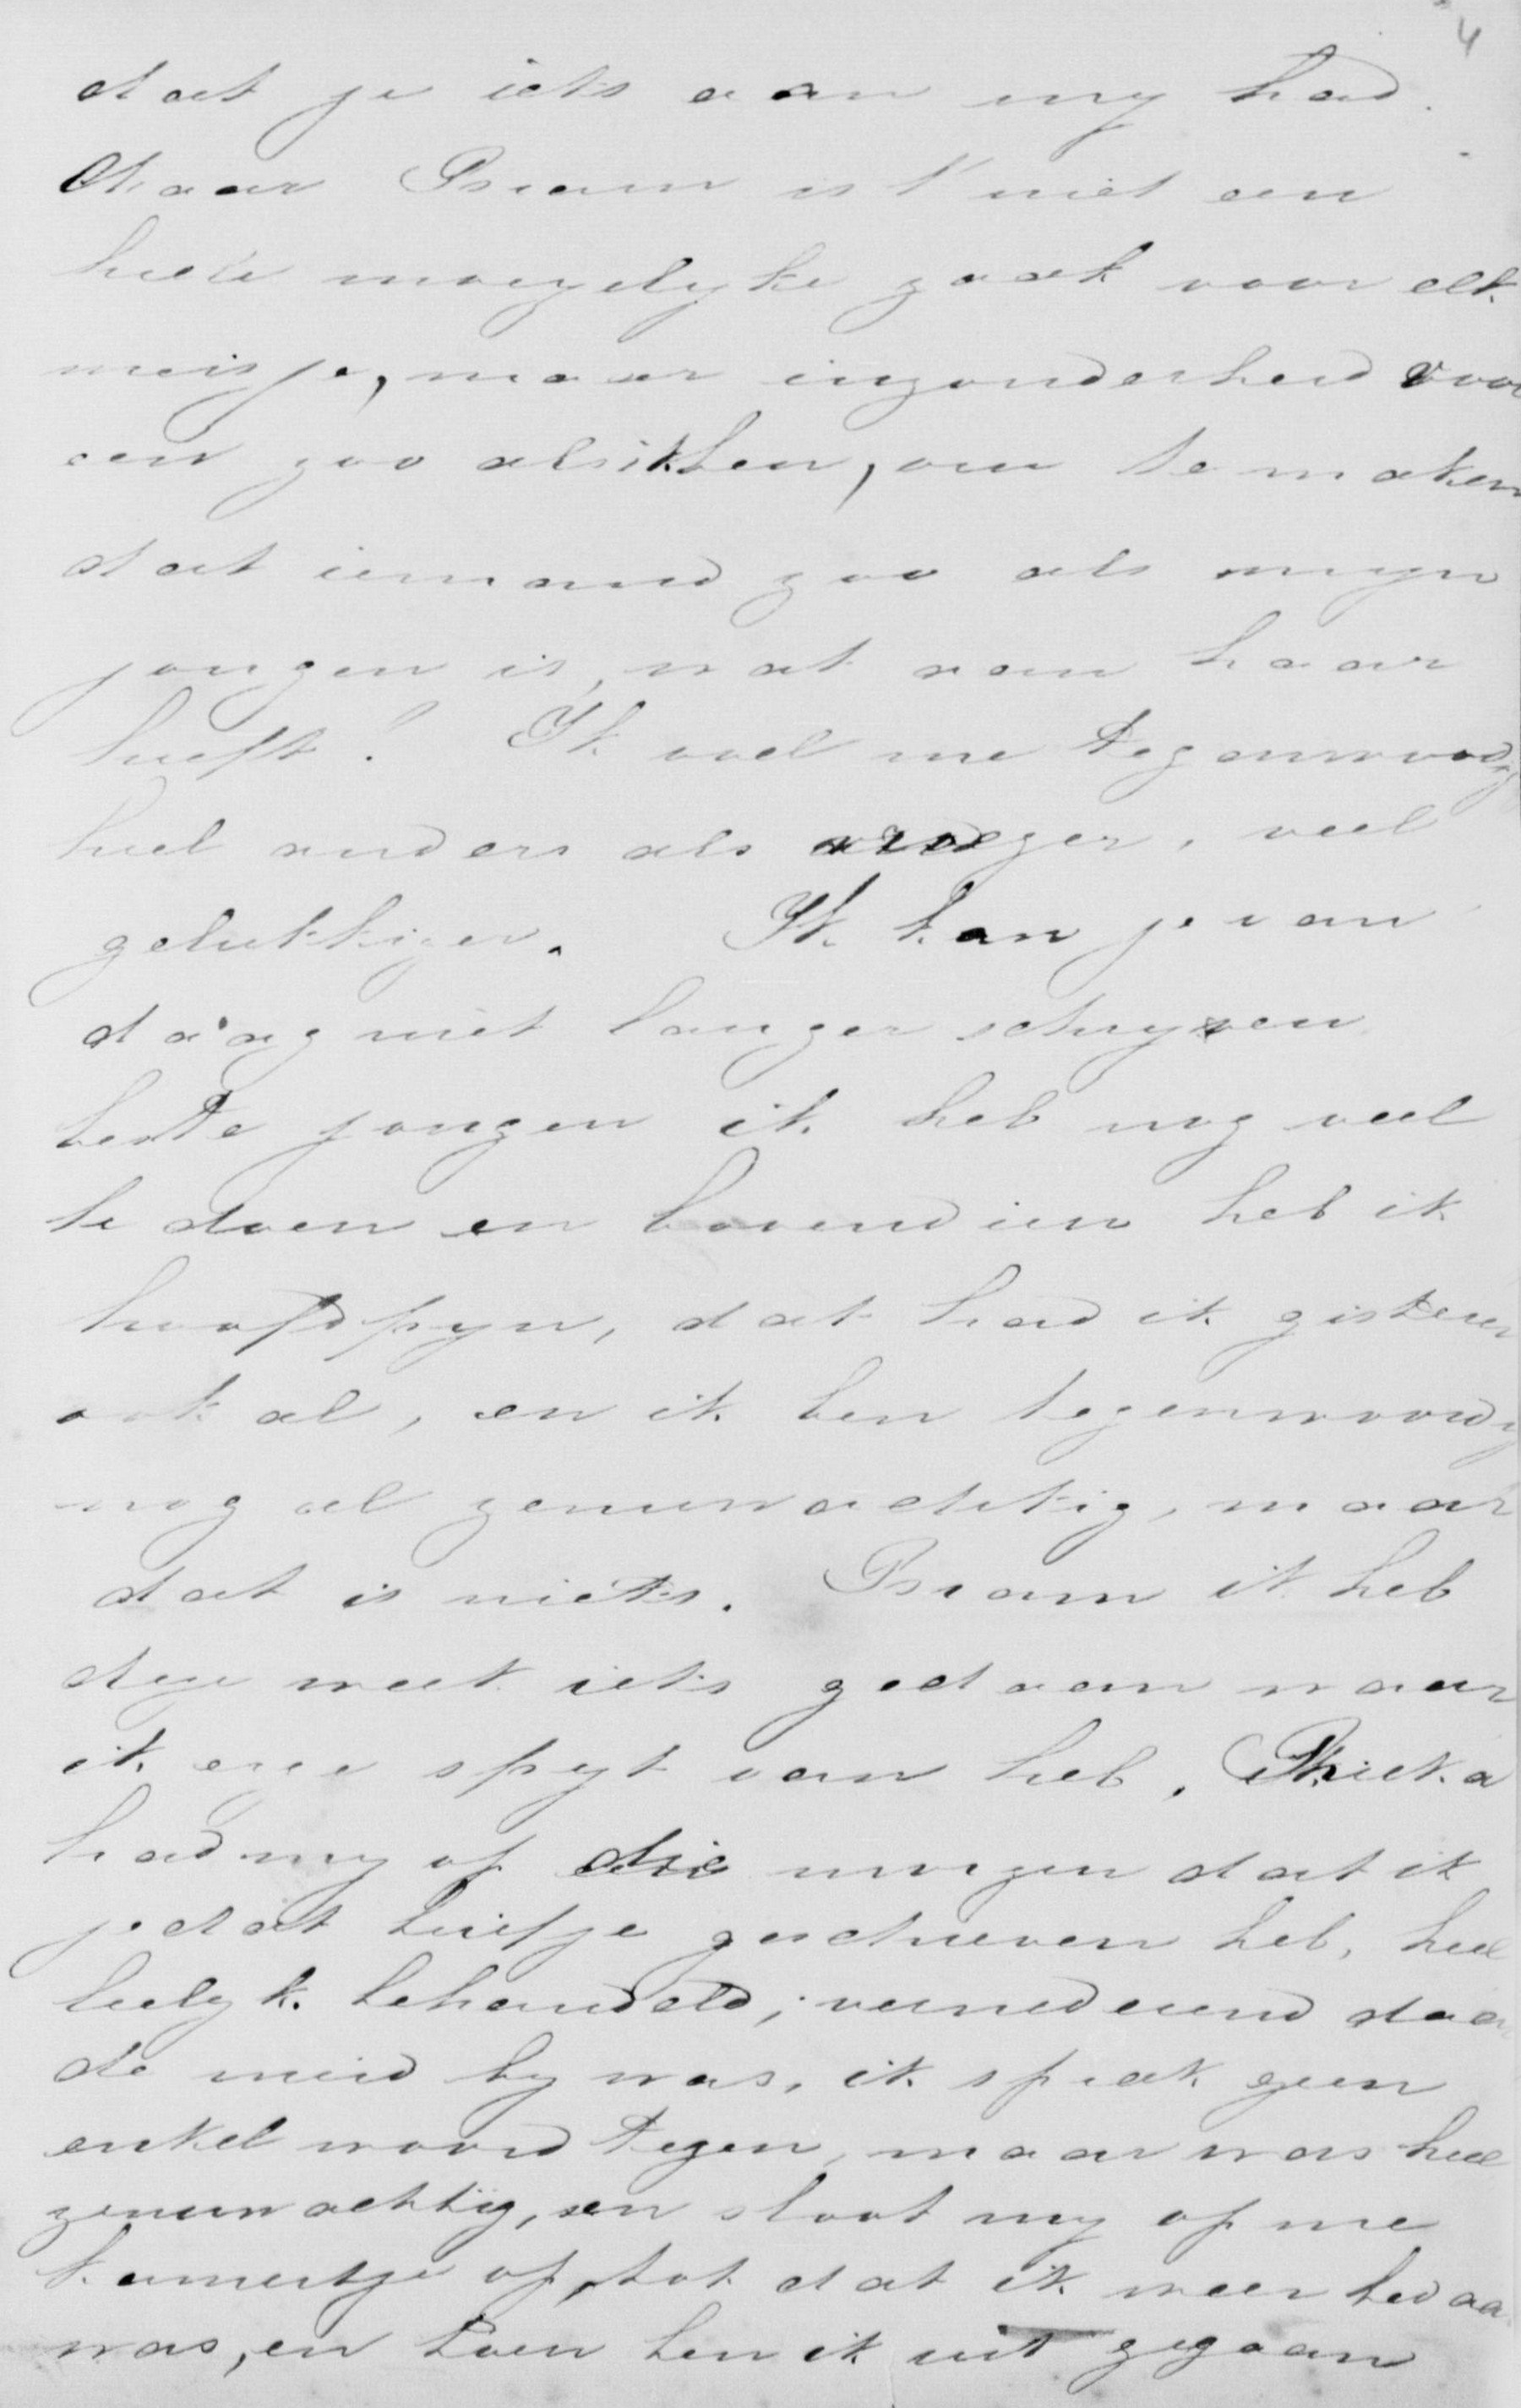 4
dat je iets aan my had.
Maar Bram is 't niet een
heele moeyelyke zaak voor elk
meisje, maar inzonderheid voor
een zoo als ik ben, om te maken
dat iemand zoo als mijn
jongen is, wat aan haar
heeft? Ik voel me tegenwoordig
heel anders als vroeger, veel
gelukkiger. Ik kan je van
daag niet langer schryven
beste jongen ik heb nog veel
te doen en bovendien heb ik
hoofdpyn, dat had ik gisteren
ook al, en ik ben tegenwoordig
nog al zenuwachtig, maar
dat is niets. Bram ik heb
deze week iets gedaan waar
ik erge spyt van heb.
had my op die morgen dat ik
je dat briefje geschreven heb, heel
leelyk behandeld; vernederend daar
de meid by was, ik sprak geen
enkel woord tegen, maar was heel
zenuwachtig, en sloot my op me
kamertje op, tot dat ik weer bedaa
was, en toen ben ik uit gegaan